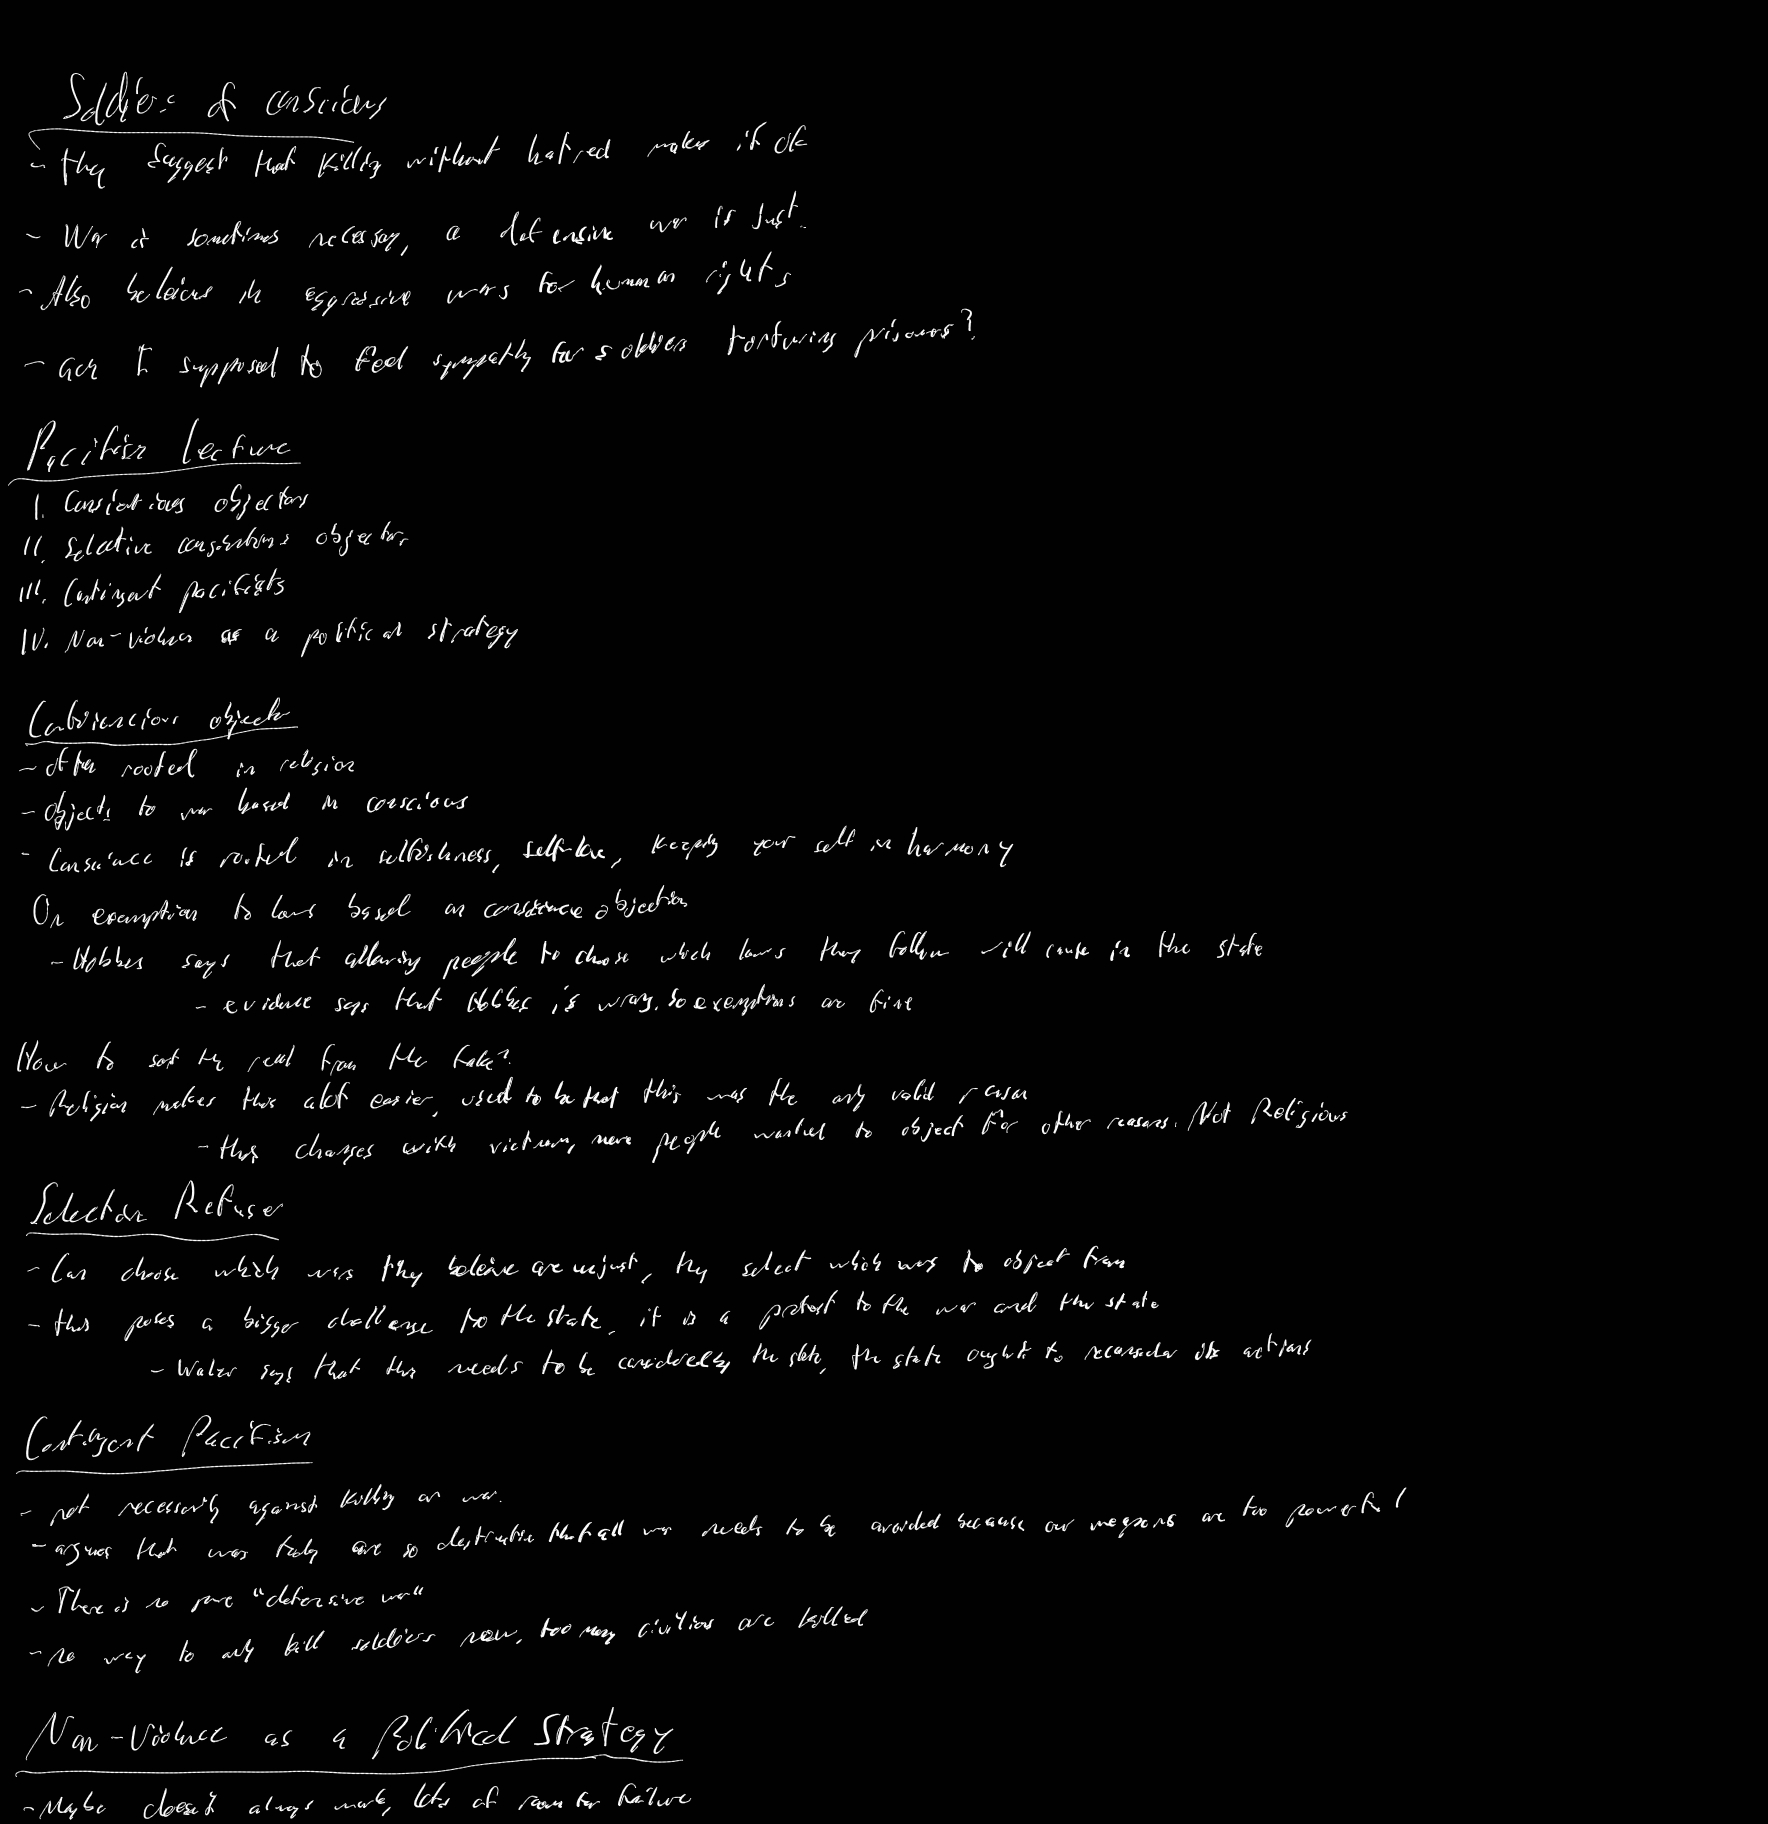 Soldiers of conscious
- they suggest that killing without hatred makes it ok
- War is sometimes necessary, a defensive war is just.
- Also beleives in aggressive wars for human rights
- am I supposed to feel sympathy for soldiers torturing prisoners?
Pacifism lecture
I. Conscientious objectors
II. Selective conscientious objectors
III. Contingent pacifists
IV. Non-violence as a political strategy
objector
- often rooted in religion
- objects to war based in conscious
- Conscience is rooted in selfishness, self-love, keeping your self in harmony
On exemption to laws based on conscience objection
- Hobbes says that allowing people to choose which laws they follow will cause in the state
- evidence says that Hobbes is wrong. so exemptions are fine
How to sort the real from the fake?
- Religion makes this alot easier, used to be that this was the only valid reason
- this changes with more people wanted to object for other reasons. Not Religious
Selective Refuser
- Can choose which wars they beleive are unjust, they select which wars to object from
- this poses a bigger challenge to the state, it is a protest to the war and the state
- says that this needs to be considered by the state, the state ought to reconsider its actions
Contingent Pacifism
- not necessarily against killing or war.
- argues that wars today are so destructive that all war needs to be avoided because our weapons are too powerful
- There is no pure "defensive war"
- no way to only kill soldiers now, too many civilians are killed
Non-Violence as a Political Strategy
- Maybe doesn't always work, lots of room for failure